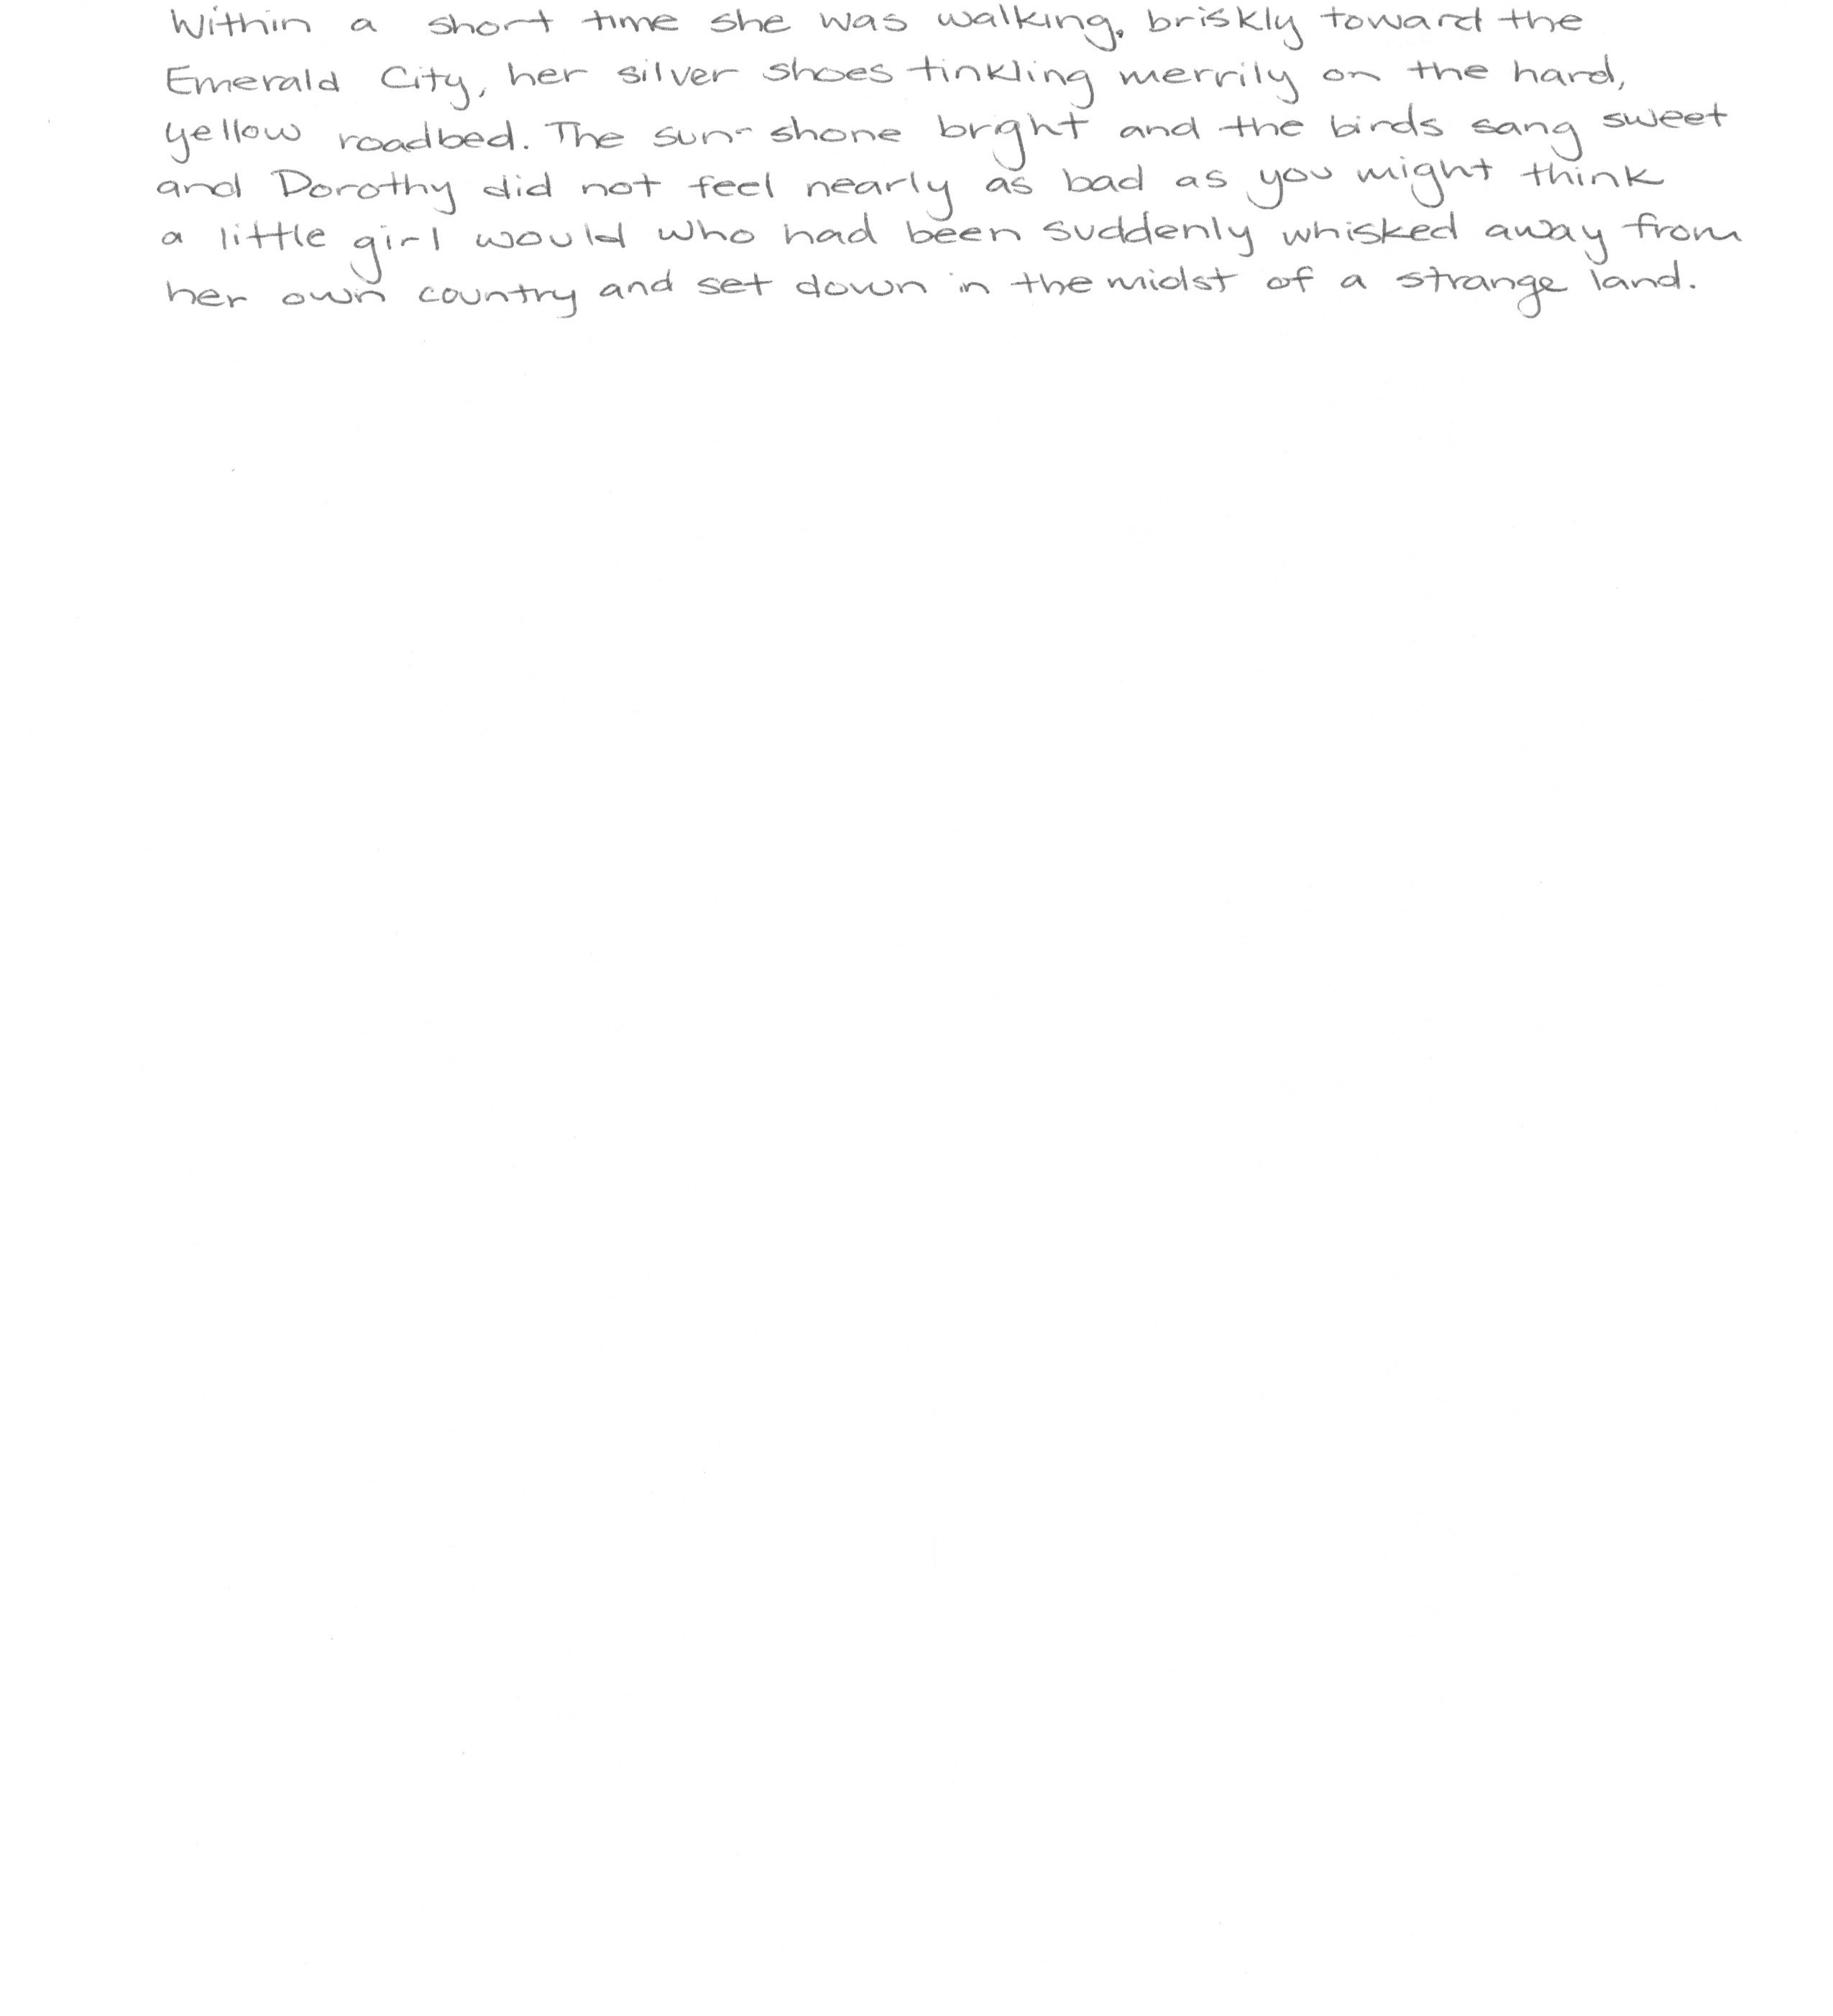 Within a short time she was walking, briskly toward the
Emerald City, her silver shoes tinkling merrily on the hard,
yellow roadbed. The sun- shone brght and the birds sang sweet
and Dorothy did not feel nearly as bad as you might think
a little girl would who had been suddenly whisked away from
her own country and set down in the midst of a strange land.